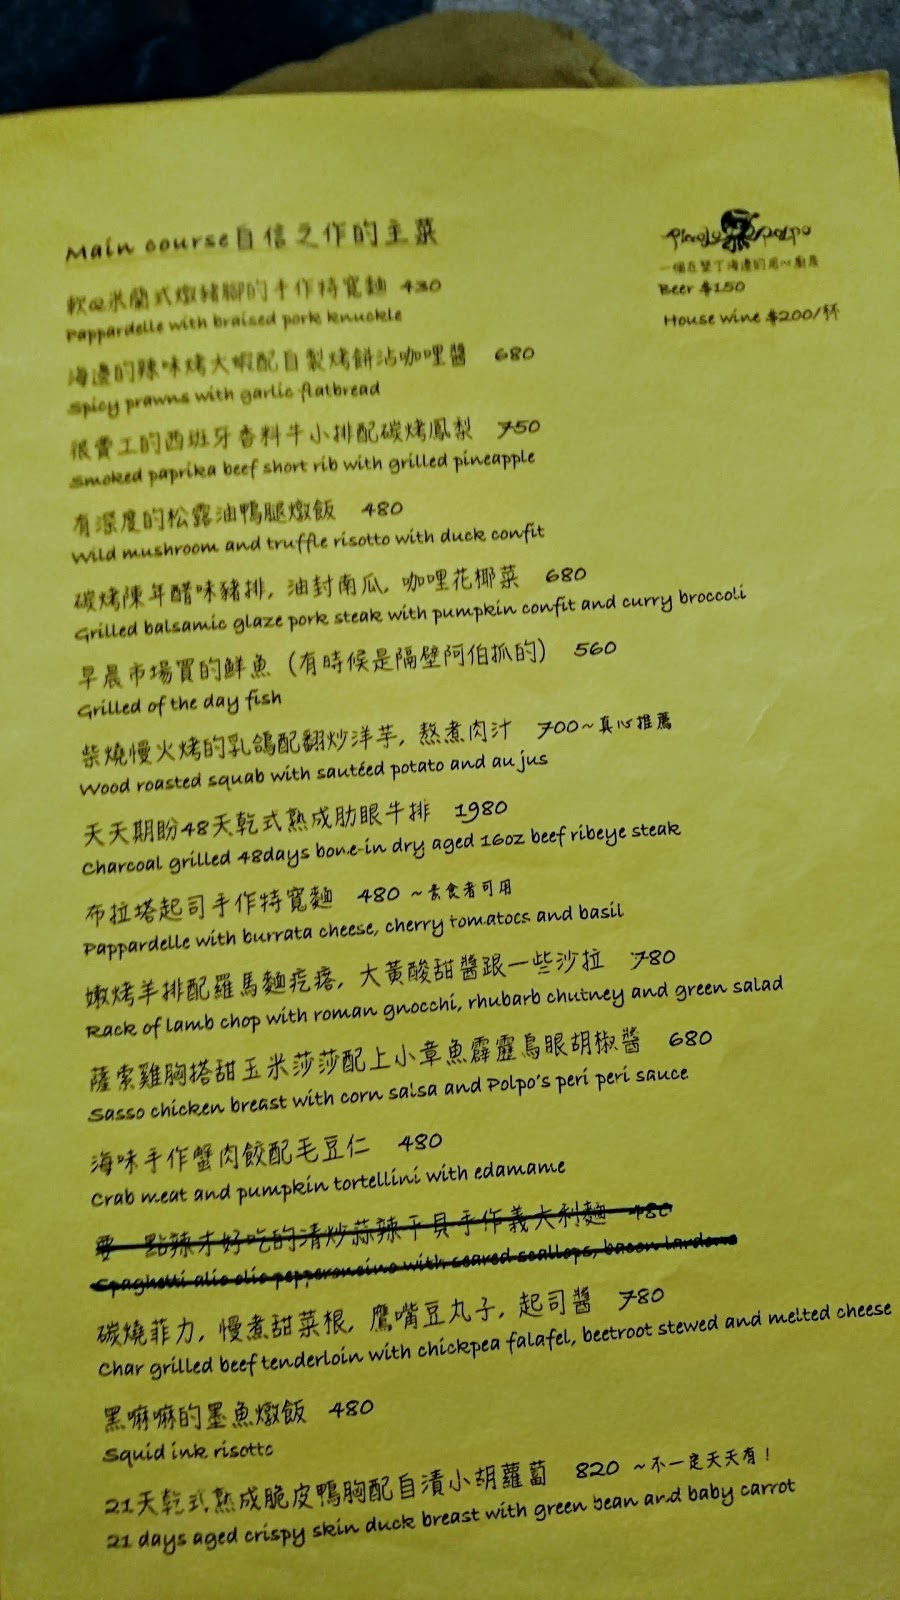 Main course自信之作的主菜
Piccolo Polpo
一個在墾丁海邊的用心廚房
Beer $150
House wine $200/杯
軟Q米蘭式燉豬腳的手作特寬麵 430
Pappardelle with braised pork knuckle
海邊的辣味烤大蝦配自製烤餅沾咖哩醬 680
Spicy prawns with garlic flatbread
很費工的西班牙香料牛小排配碳烤鳳梨 750
Smoked paprika beef short rib with grilled pineapple
有深度的松露油鴨腿燉飯 480
Wild mushroom and truffle risotto with duck confit
碳烤陳年醋味豬排, 油封南瓜, 咖哩花椰菜 680
Grilled balsamic glaze pork steak with pumpkin confit and curry broccoli
早晨市場買的鮮魚 (有時候是隔壁阿伯抓的) 560
Grilled of the day fish
柴燒慢火烤的乳鴿配翻炒洋芋, 熬煮肉汁 700~真心推薦
Wood roasted squab with sautéed potato and au jus
天天期盼48天乾式熟成肋眼牛排 1980
Charcoal grilled 48days bone-in dry aged 16oz beef ribeye steak
布拉塔起司手作特寬麵 480 ~素食者可用
Pappardelle with burrata cheese, cherry tomatoes and basil
嫩烤羊排配羅馬麵疙瘩, 大黃酸甜醬跟一些沙拉 780
Rack of lamb chop with roman gnocchi, rhubarb chutney and green salad
薩索雞胸搭甜玉米莎莎配上小章魚霹靂鳥眼胡椒醬 680
Sasso chicken breast with corn salsa and Polpo's peri peri sauce
海味手作蟹肉餃配毛豆仁 480
Crab meat and pumpkin tortellini with edamame
要一點辣才好吃的清炒蒜辣干貝手作義大利麵 480
Spaghetti alio olio pepperoncino with seared scallops, bacon lardons
碳燒菲力, 慢煮甜菜根, 鷹嘴豆丸子, 起司醬 780
Char grilled beef tenderloin with chickpea falafel, beetroot stewed and melted cheese
黑嘛嘛的墨魚燉飯 480
Squid ink risotto
21天乾式熟成脆皮鴨胸配自漬小胡蘿蔔 820 ~不一定天天有!
21 days aged crispy skin duck breast with green bean and baby carrot